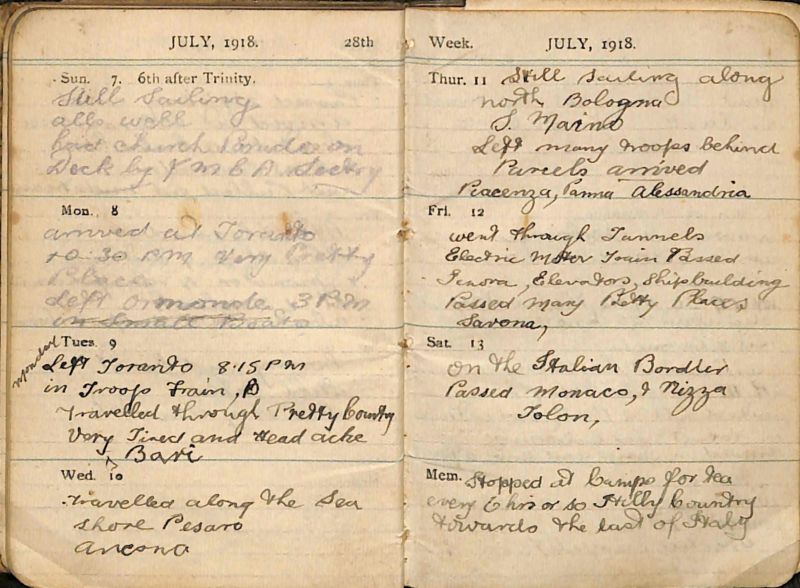 JULY, 1918. 28th
Sun. 7. 6th after Trinity.
Still Sailing
alls well
had church Parade on
Deck by Y M C A Sectry
Mon. 8
arrived at Toranto
10:30 P.M very Pretty
Place
Left Ormonde 3 P.M
in Small Boats
Tues. 9
Left Toranto 8.15 P M
in Troop Train,
Travelled through Pretty Country
Very Tired and Head ache
Bari
Wed. 10
Travelled along the Sea
shore Pesaro
Ancona
Week. JULY, 1918.
Thur. 11 Still sailing along
north Bologna
S. Maino
Left many troops behind
Parcels arrived
Piacenza, Parma Alessandria
Fri. 12
went through Tunnels
Electric Motor Train Passed
Genova, Elevators, Shipbuilding
Passed many Pretty Places
Savona,
Sat. 13
on the Italian Bordier
Passed Monaco, & Nizza
Tolon,
Mem. Stopped at Camps for tea
every 6 hrs or so Hilly Country
towards the last of Italy